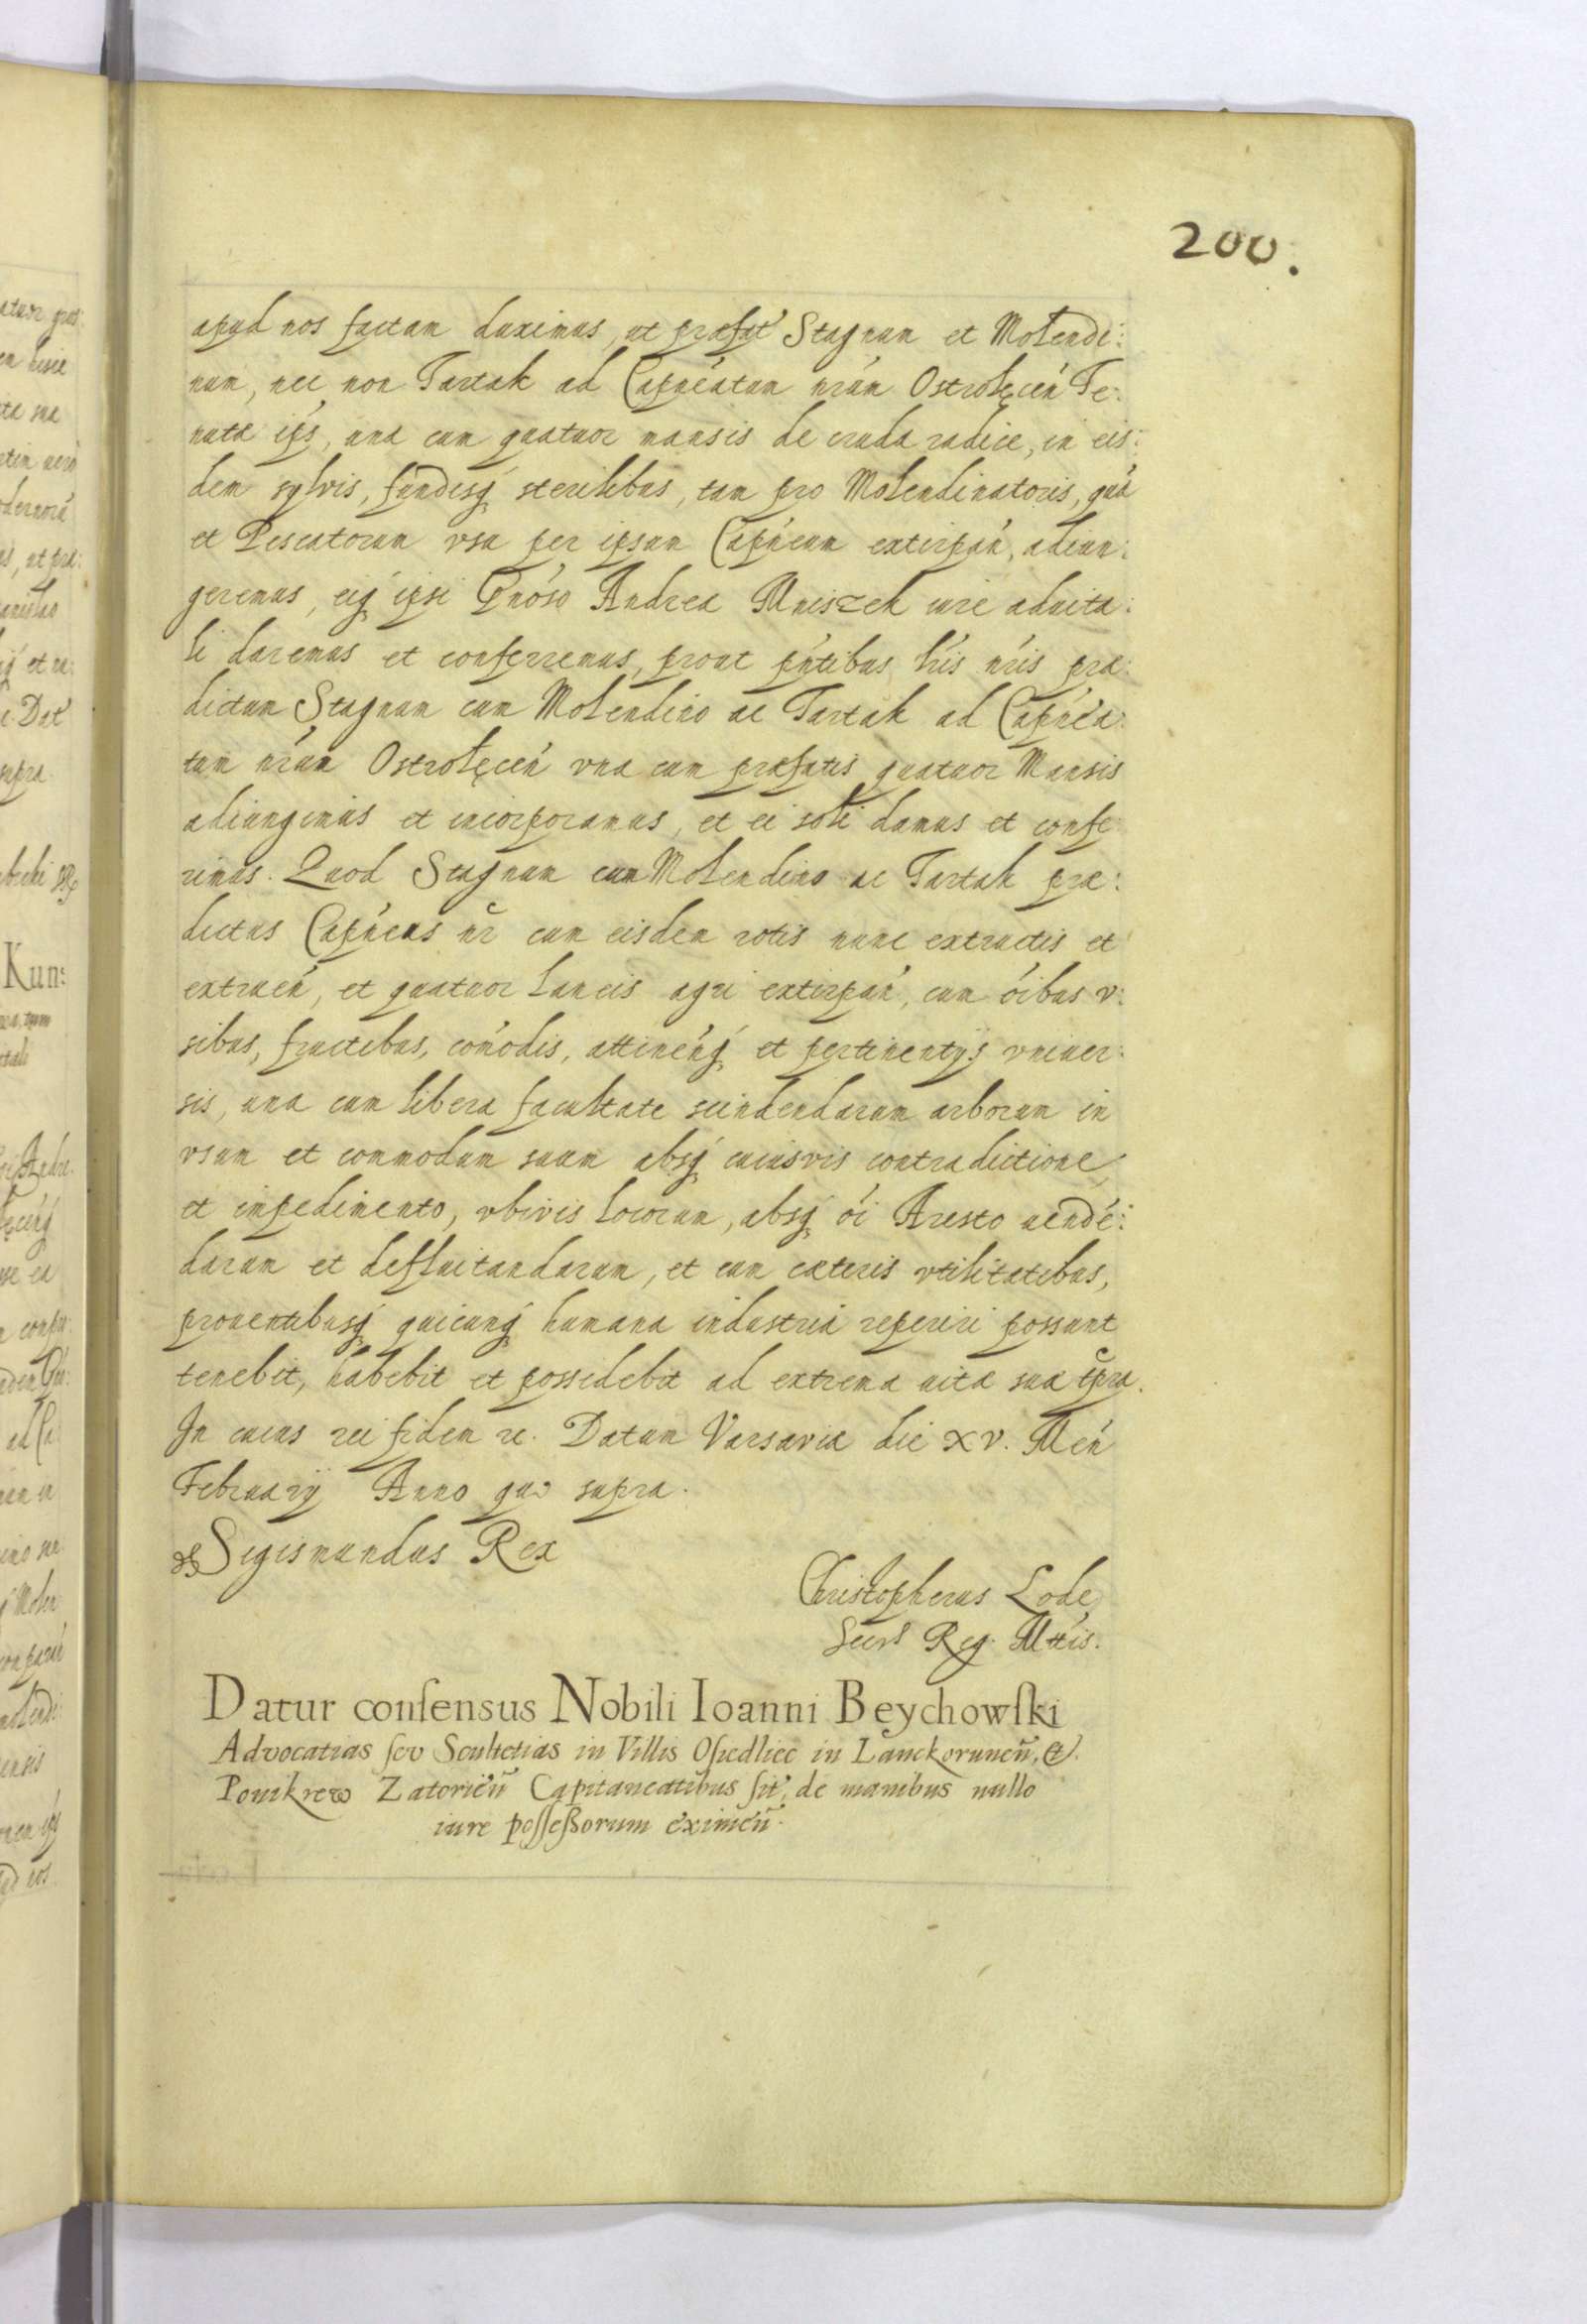 200.
apud nos factam duximus, ut præfat Stagnum et Molendi:
num, nec non Tartak ad Capneatum nrám Ostrolęcen Te:
nutæ ips, una cum quatuor mansis de cruda radice, in eis:
dem sylvis, fundisq sterilibus, tam pro Molendinatoris, quá
et Piscatorum vsu per ipsum Capneum extirpan, adiun:
geremus, eiq ipsi Gnóso Andreæ Mniszek iure aduita:
li daremus et conferremus, prout pntibus lris nris præ:
dictum Stagnum cum Molendino ac Tartak ad Capnea:
tum nrum Ostrolęcen vna cum præfatis quatuor Mansis
adiungimus et incorporamus, et ei soli damus et confe
rimus. Quod Stagnum cum Molendino ac Tartak præ:
dictus Capneus nr cum eisdem rotis nunc extructis et
extruen, et quatuor Laneis agri extirpan, cum óibus v:
sibus, fructibus, comodis, attinenq et pertinentijs vniuer:
sis, una cum libera facultate scindendarum arborum in
vsum et commodum suum absq cuiusvis contradictione
et impedimento, vbivis locorum, absq ói Aresto uendé:
darum et defluitandarum, et cum cæteris vtilitatibus,
prouentibusq quicunq humana industria reperiri possunt
tenebit, habebit et possidebit ad extrema uitæ suæ tpra.
In cuius rei fidem rc. Datum Varsaviæ die XV. Men
February Anno quo supra.
Sigismundus Rex
Christopherus Lode
Secrs Reg. Mttis.
Datur consensus Nobili Ioanni Beychowski
Advocatias sev Scultetias in Villis Osiedliec in Lanckorunen, et
Ponikrew Zatorien Capitaneatibus sit, de manibus nullo
iure possessorum eximen.